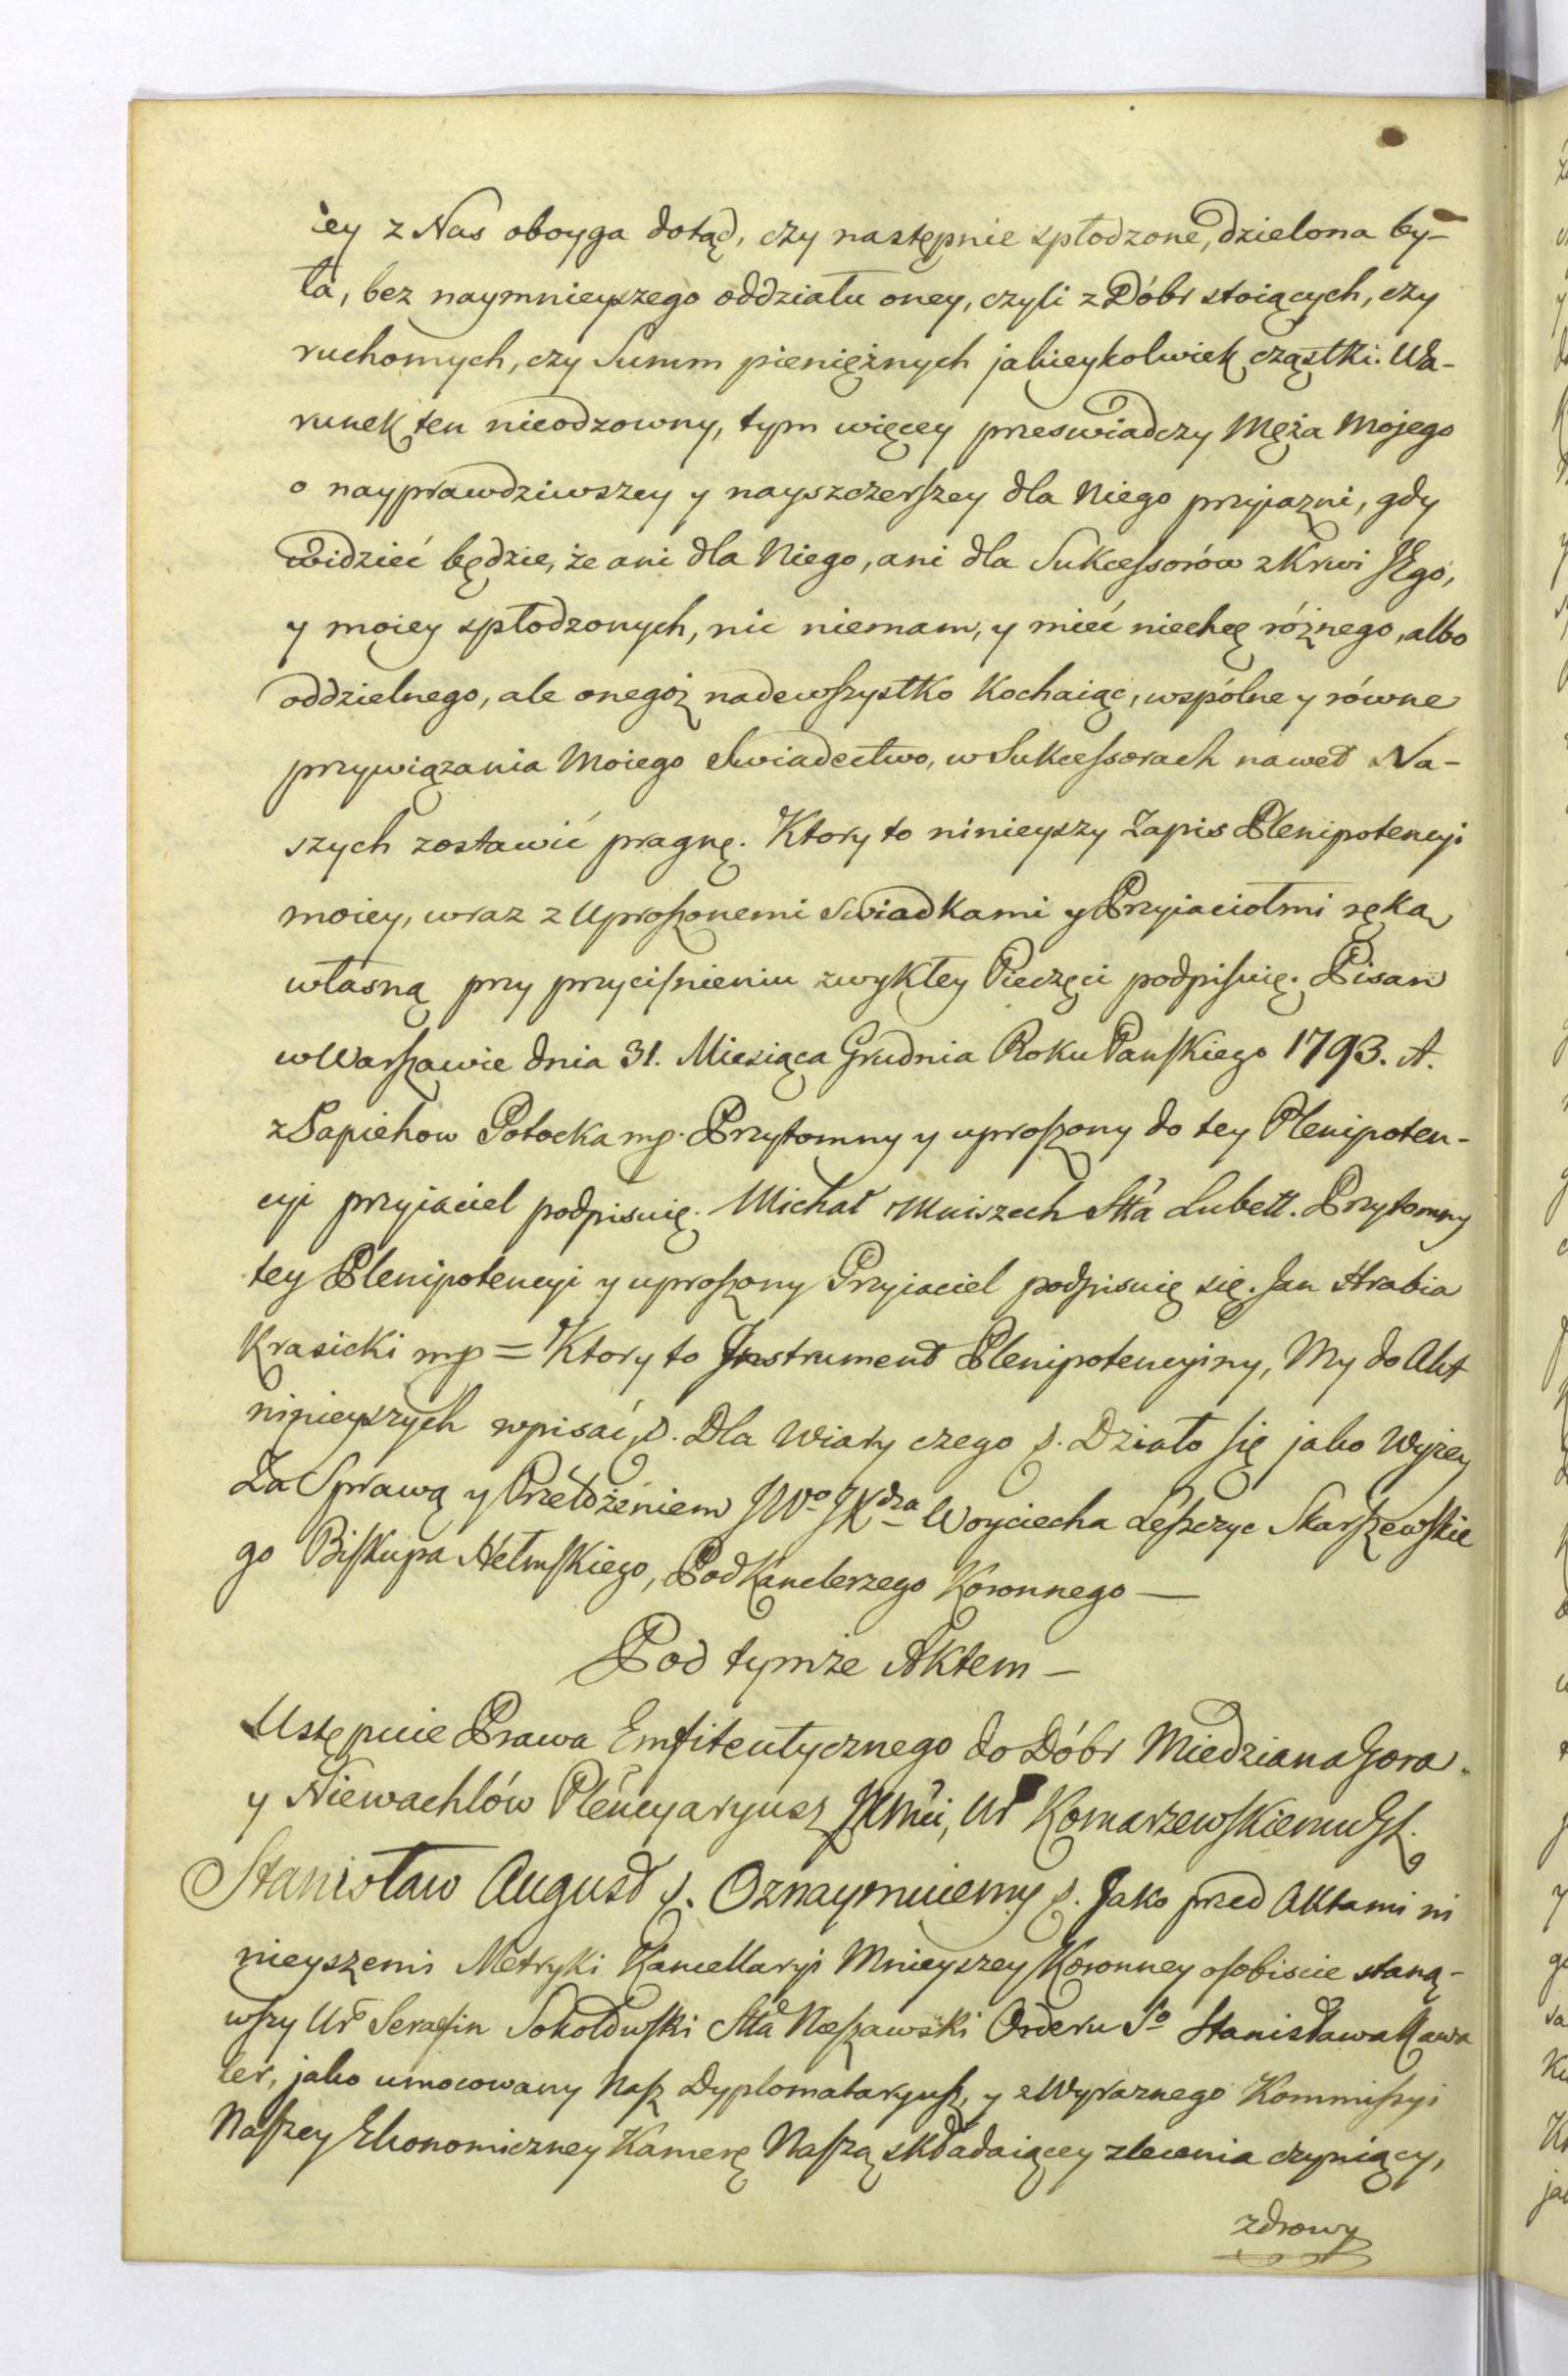 iey z Nas oboyga dotąd, czy następnie spłodzone, dzielona by-
ła, bez naymnieyszego oddziału oney, czyli z Dóbr stoiących, czy
ruchomych, czy Summ pieniężnych jakieykolwiek cząstki. Wa-
runek ten nieodzowny, tym więcey przeswiadczy Męża Mojego
o nayprawdziwszey y nayszczerſzey dla Niego przyiazni, gdy
widzieć będzie, że ani dla Niego, ani dla Sukceſsorów z Krwi JEgo,
y moiey spłodzonych, nic niemam, y mieć niechcę różnego, albo
oddzielnego, ale onegoż nadewſzystko Kochaiąc, wspólne y równe
przywiązania Moiego Swiadectwo, w Sukceſsorach nawet Na-
szych zostawić pragnę. Ktory to ninieyszy Zapis Plenipotencyi
moiey, wraz z Uproſzonemi Swiadkami y Przyiaciołmi ręką
własną przy przyciſnieniu zwykłey Pieczęci podpiſuię. Pisan
w Warſzawie dnia 31. Miesiąca Grudnia Roku Pańſkiego 1793. A.
z Sapiehow Potocka mp. Przytomny y uproſzony do tey Plenipoten-
cyi przyiaciel podpisuię. Michał Mniszech Stta Lubell. Przytomny
tey Plenipotencyi y uproſzony Przyiaciel podpisuię się. Jan Hrabia
Krasicki mp = Ktory to Jnstrument Plenipotencyiny, My do Akt
ninieyszych wpisać, p. Dla Wiary czego p. Działo ſię jako Wyżey
Za Sprawą y Przełożeniem JWo JXdza Woyciecha Leſzczyc Skarſzewſkie
go Biſkupa Hełmſkiego, PodKanclerzego Koronnego —
Pod tymże Aktem —
Ustępuie Prawa Emfiteutycznego do Dóbr Miedziana Gora
y Niewachlów Plencyaryusz JKMći, Ur Komarzewſkiemu
Stanisław August p. Oznaymuiemy p. Jako przed Aktami ni
nieyszemi Metryki Kancellaryi Mnieyszey Koronney oſobiscie staną-
wſzy Ur Serafin Sokołowſki Stta Nieſzawski Orderu So Stanisława Kawa
ler, jako umocowany Naſz Dyplomataryuſz, y z Wyraznego Kommiſsyi
Naſzey Ekonomiczney Kamerę Naſzą składaiącey zlecenia czyniący,
zdrowy